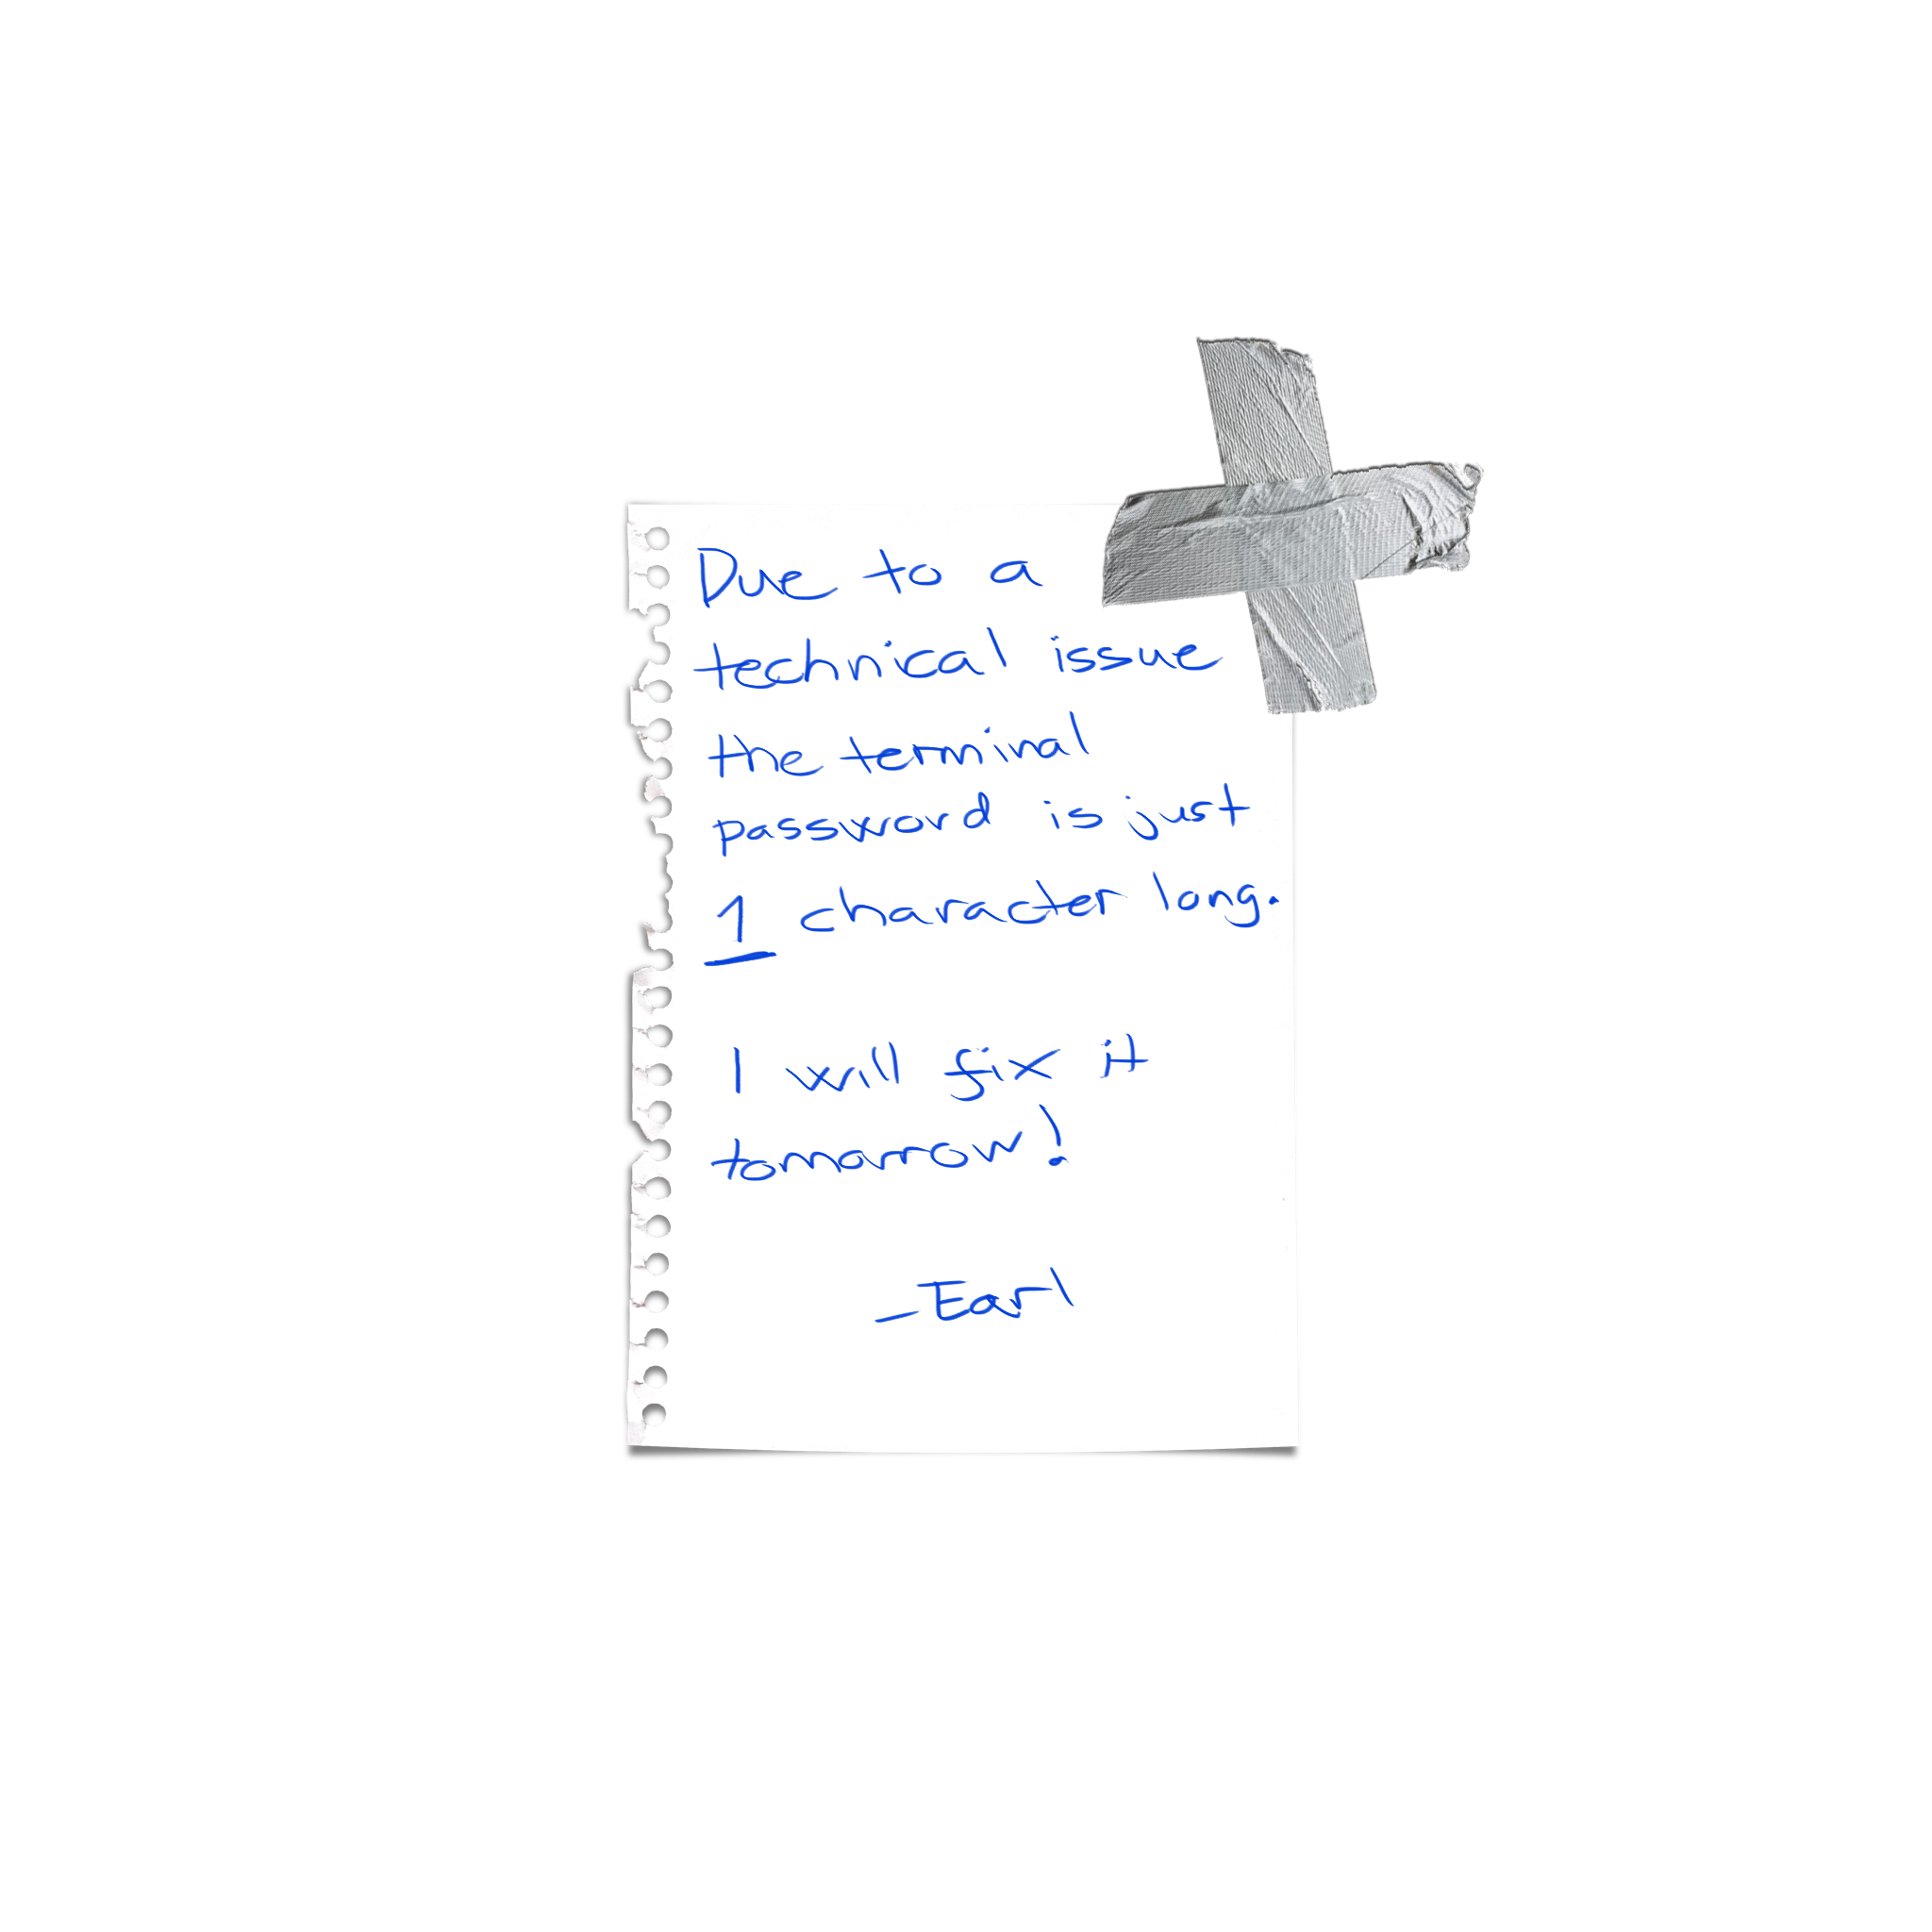 Due to a
technical issue
the terminal
password is just
1 character long.
I will fix it
tomorrow!
-Earl